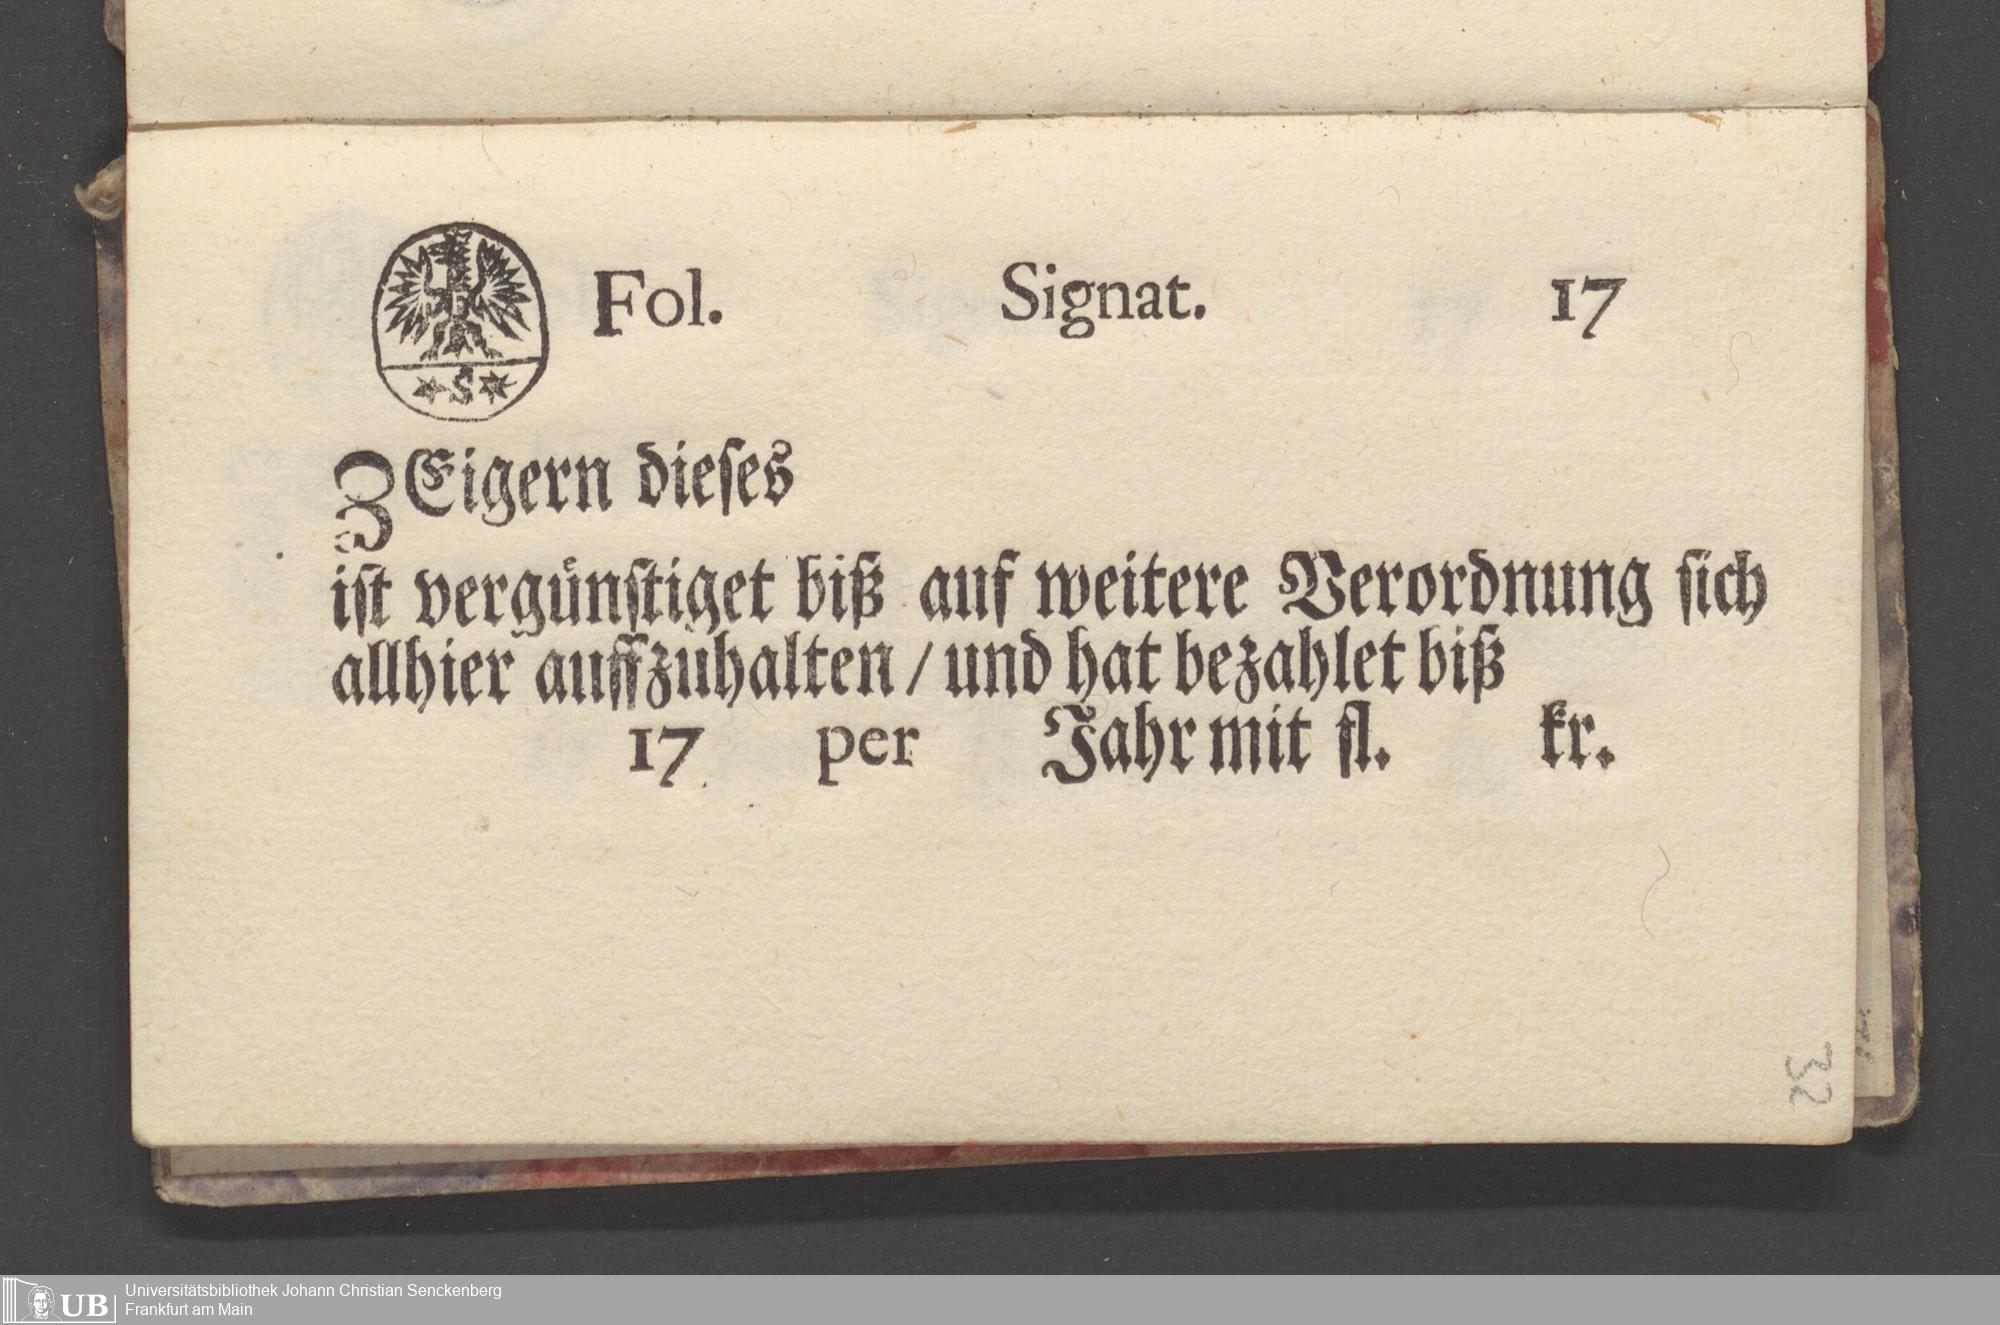 Fol. Signat. 17
S
ZEigern dieses
ist vergünstiget biß auf weitere Verordnung sich
allhier auffzuhalten / und hat bezahlet biß
17 per Jahr mit fl. kr.
32
UB
Universitätsbibliothek Johann Christian Senckenberg
Frankfurt am Main